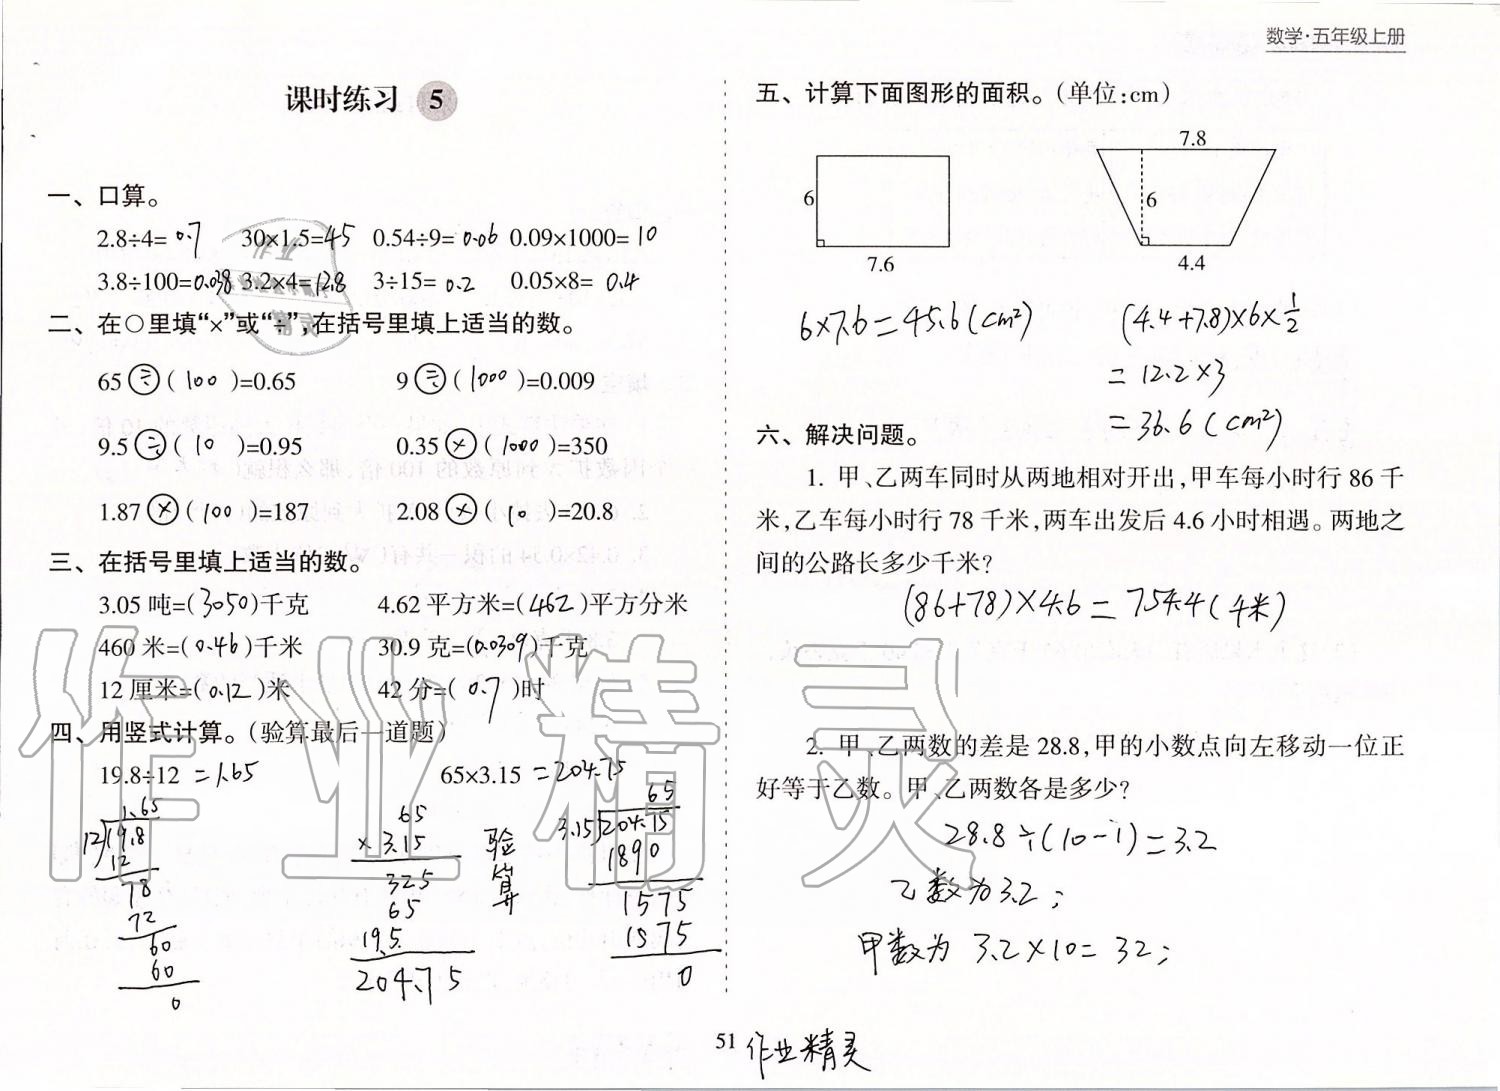 数学·五年级上册
课时练习 5
一、口算。
2.8÷4= 0.7 30×1.5=45 0.54÷9= 0.06 0.09×1000= 10
3.8÷100=0.038 3.2×4=12.8 3÷15= 0.2 0.05×8= 0.4
二、在○里填“×”或“÷”,在括号里填上适当的数。
65 ÷ ( 100 )=0.65 9 ÷ ( 1000 )=0.009
9.5 ÷ ( 10 )=0.95 0.35 × ( 1000 )=350
1.87 × ( 100 )=187 2.08 × ( 10 )=20.8
三、在括号里填上适当的数。
3.05 吨=( 3050 )千克 4.62 平方米=( 462 )平方分米
460 米=( 0.46 )千米 30.9 克=(0.0309)千克
12 厘米=( 0.12 )米 42 分=( 0.7 )时
四、用竖式计算。(验算最后一道题)
19.8÷12 =1.65 65×3.15 =204.75
1.65
12 19.8
12
78
72
60
60
0
65
× 3.15
325
65
195
204.75
验算
65
3.15 204.75
1890
1575
1575
0
五、计算下面图形的面积。(单位:cm)
6
7.6
7.8
6
4.4
6×7.6=45.6(cm²)
(4.4+7.8)×6×1/2
=12.2×3
=36.6(cm²)
六、解决问题。
1. 甲、乙两车同时从两地相对开出,甲车每小时行 86 千
米,乙车每小时行 78 千米,两车出发后 4.6 小时相遇。两地之
间的公路长多少千米?
(86+78)×4.6=754.4(千米)
2. 甲、乙两数的差是 28.8,甲的小数点向左移动一位正
好等于乙数。甲、乙两数各是多少?
28.8÷(10-1)=3.2
乙数为3.2;
甲数为 3.2×10=32;
51
作业精灵
作业精灵